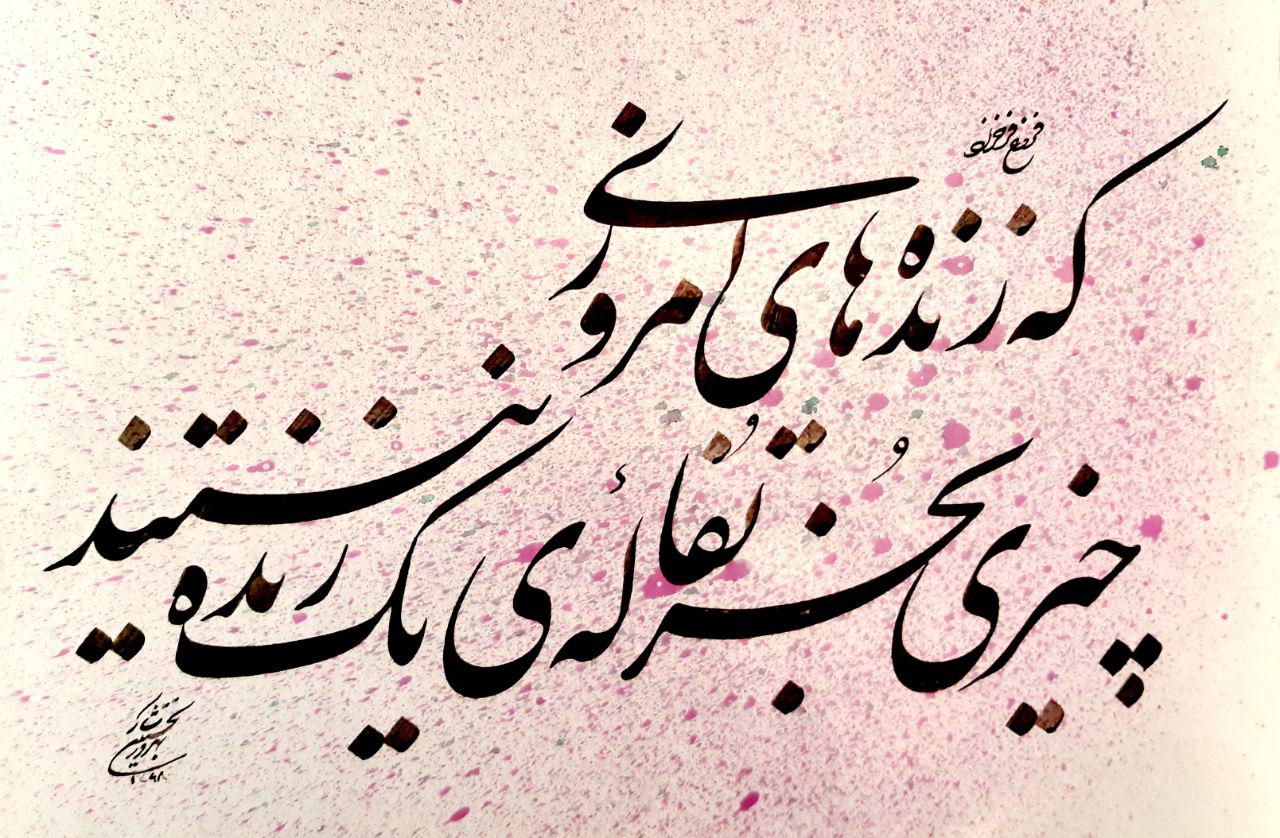 فروغ فرخزاد
که زنده های امروزی
چیزی بجُز تُفاله ی یک زنده نیستند